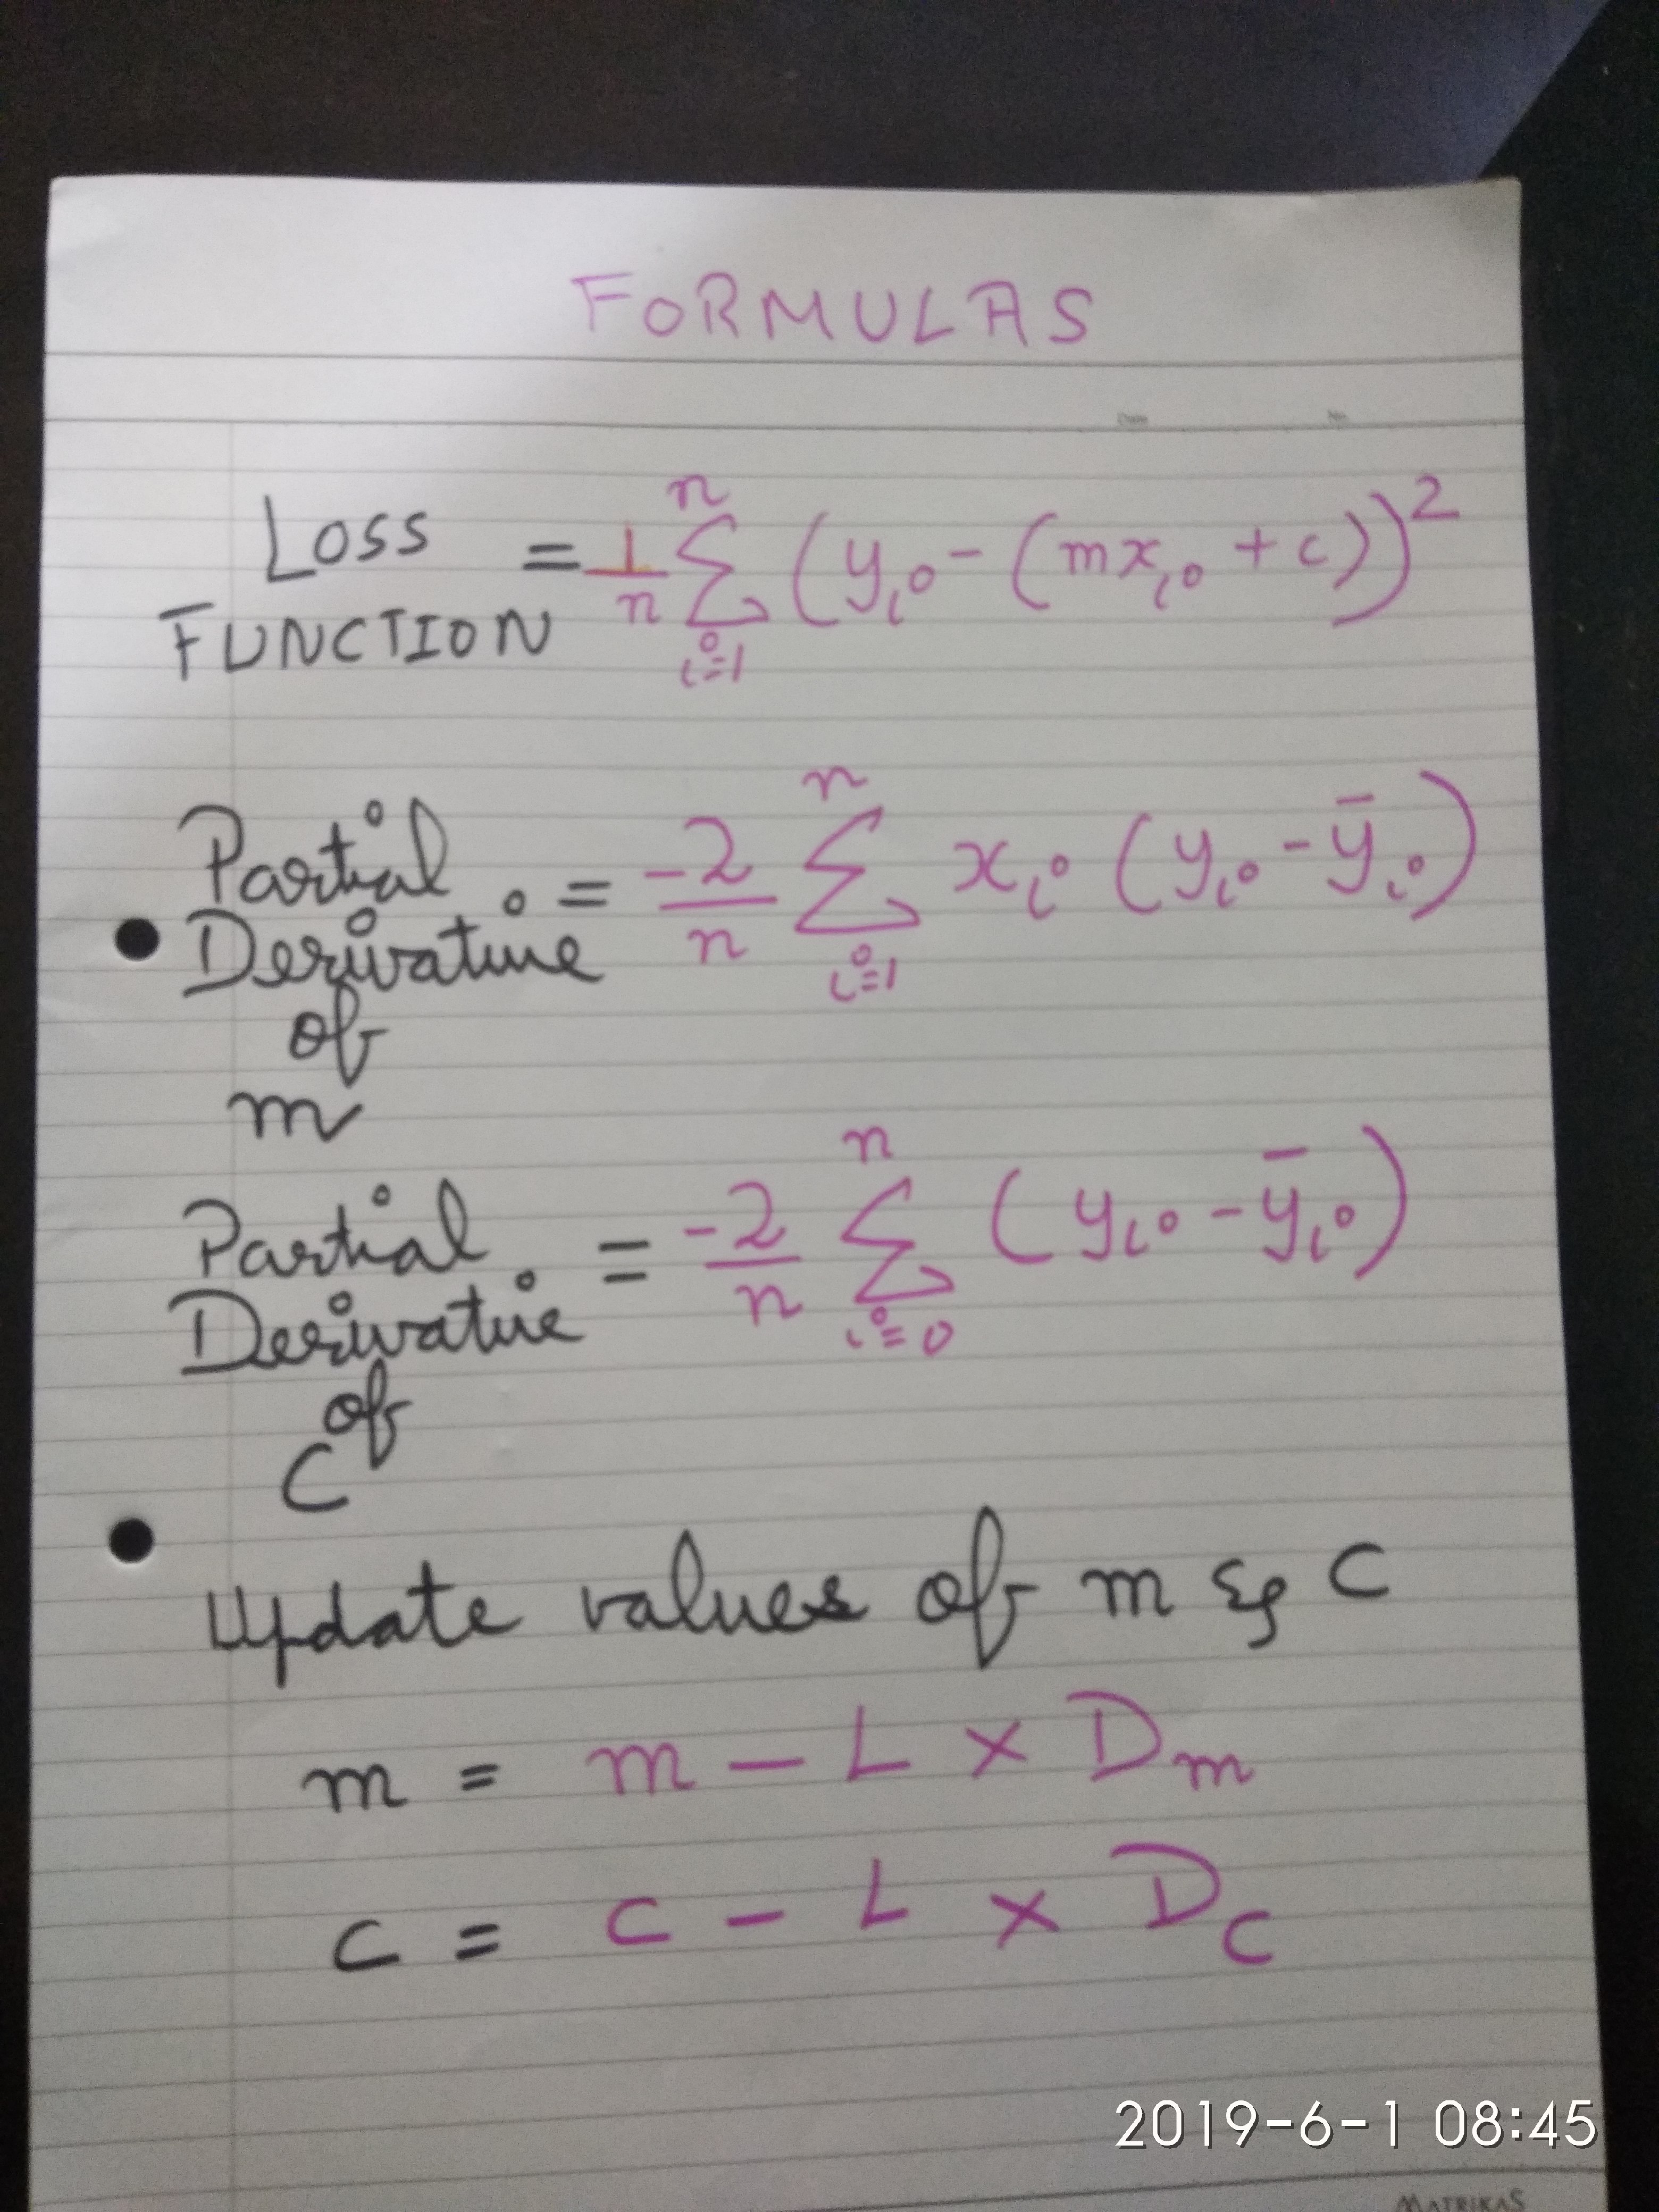 FORMULAS
LOSS FUNCTION = 1/n ∑ⁿᵢ₌₁ (yᵢ - (mxᵢ + c))²
Partial Derivative of m = -2/n ∑ⁿᵢ₌₁ xᵢ (yᵢ - ȳᵢ)
Partial Derivative of C = -2/n ∑ⁿᵢ₌₀ (yᵢ - ȳᵢ)
Update values of m & C
m = m - L × Dm
c = c - L × Dc
2019-6-1 08:45
MATRIKAS